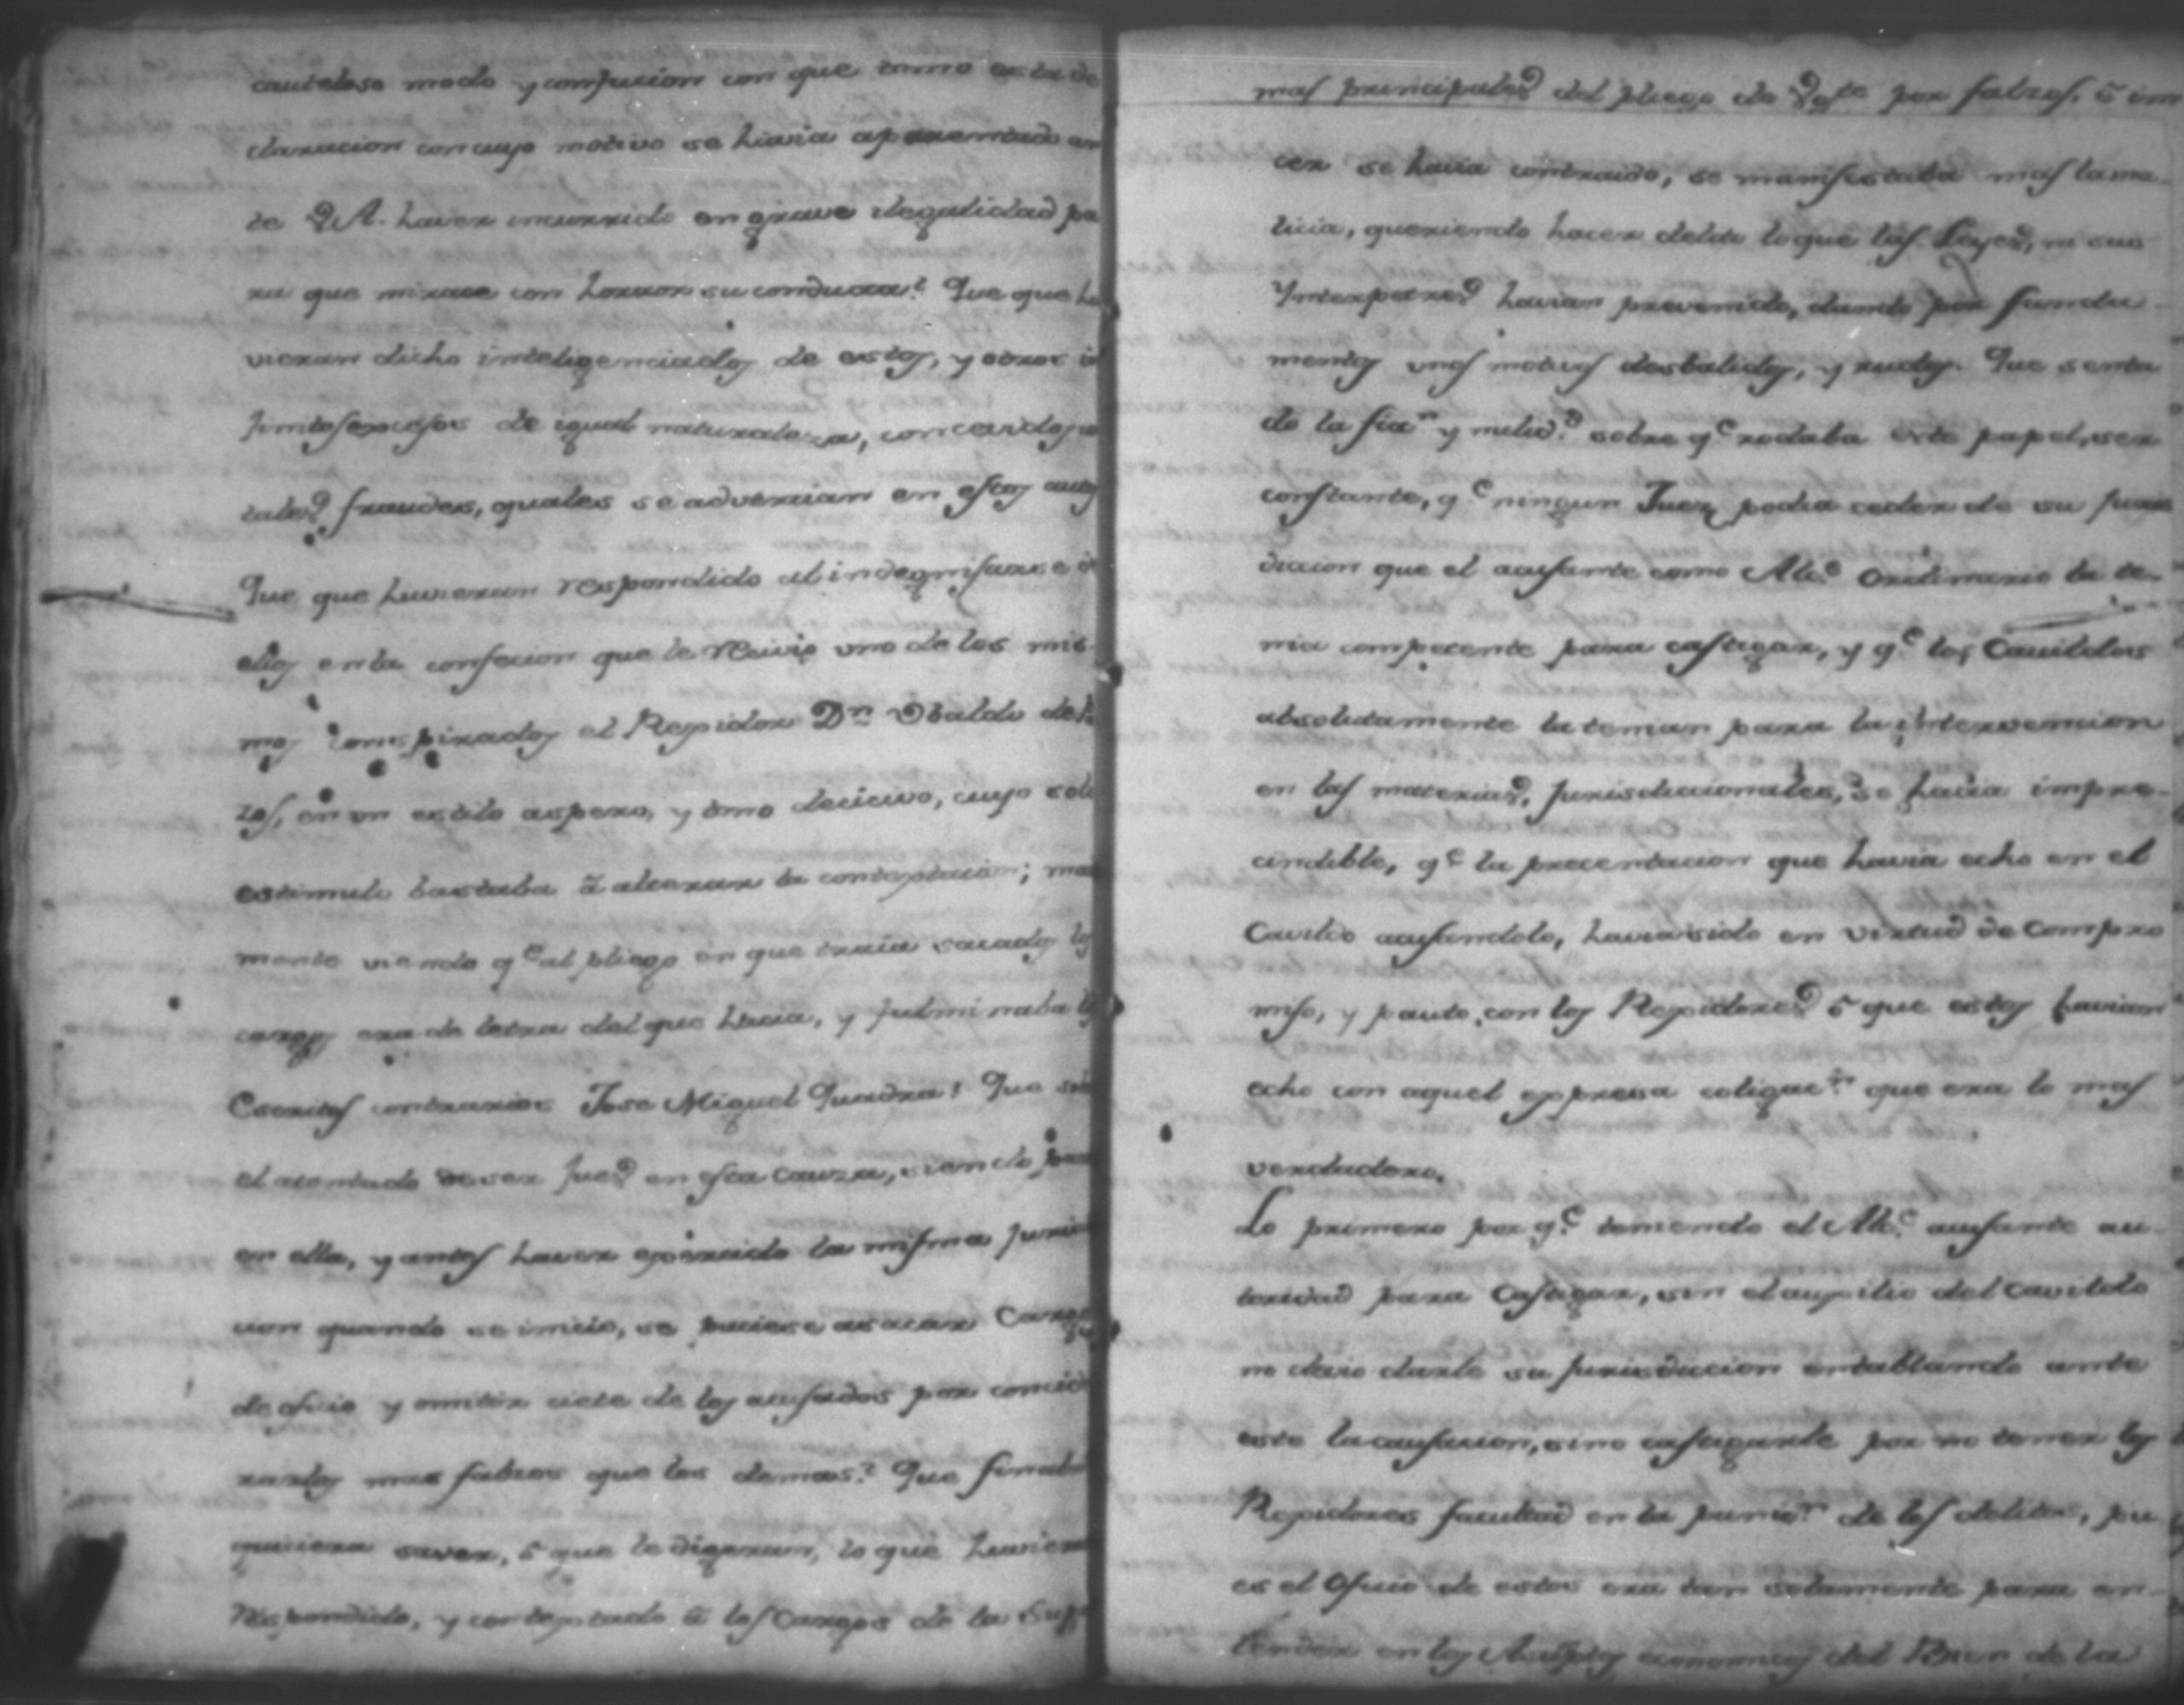 cauteloso modo y confucion con que tomo esta de
claracion con cuyo motivo se havia aparentado an
te V.A. haver incurrido en grave ilegalidad pa
ra que mirase con horror su conducta? Que que hu
vieran dicho inteligenciados de estos, y otros in
finitos excesos de igual naturaleza, conosidos
tales fraudes, quales se advertian en estos autos
Que que huvieran respondido al indegnisarse de
ellos en la confecion que le recivio uno de los mis-
mos conspirados el Regidor Dn Vbaldo de
zos, en un estilo aspero, y tono decicivo, cuyo solo
estimulo bastaba á alterar la contestacion;
mente viendo qe al pliego en que traia sacados los
cargos era de letra del que hacia, y fulminaba los
Escritos contrarios Jose Miguel Quadra? Que
el atentado de ser Jues en esta cauza, siendo
en ella, y antes haver exercido la misma juris
cion quando se inicio, se pusiese a sacar Cargos
de oficio y omitir siete de los acusados por concide
rarlos mas falsos que los demas? Que finalm
quisiera saver, ó que le digeran, lo que huvieran
Respondido, y contestado á los Cargos de la
mas principales del pliego de por falsos. ó
cer se havia contraido, se manifestaba mas la ma-
licia, queriendo hacer delito lo que las Leyes, ni sus
Ynterpetres havian prevenido, dando por funda-
mentos unos motivos desbalidos, y rudos. Que senta
do la y sobre qe rodaba este papel, ser
constante, qe ningun Juez podia ceder de su juris
diccion que el acusante como Alce Ordinario la te-
nia competente para castigar, y qe los Cavildos
absolutamente la tenian para la intervencion
en las materias, Jurisdiccionales, se hacia impre-
cindible, qe la precentacion que havia echo en el
Cavildo acusandolo, havia sido en virtud de compro
miso, y pauto, con los Regidores ó que estos havian
echo con aquel expresa coligacn que era lo mas
verdadero.
Lo primero por qe teniendo el Alce acusante au-
toridad para Castigar, sin el auxilio del Cavildo
no devio darle su jurisdiccion entablando ante
este la acusacion, sino castigarle por no tener los
Regidores facultad en la punicn de los delitos, pu
es el Oficio de estos era tan solamente para en-
tender en los economicos del Bien de la